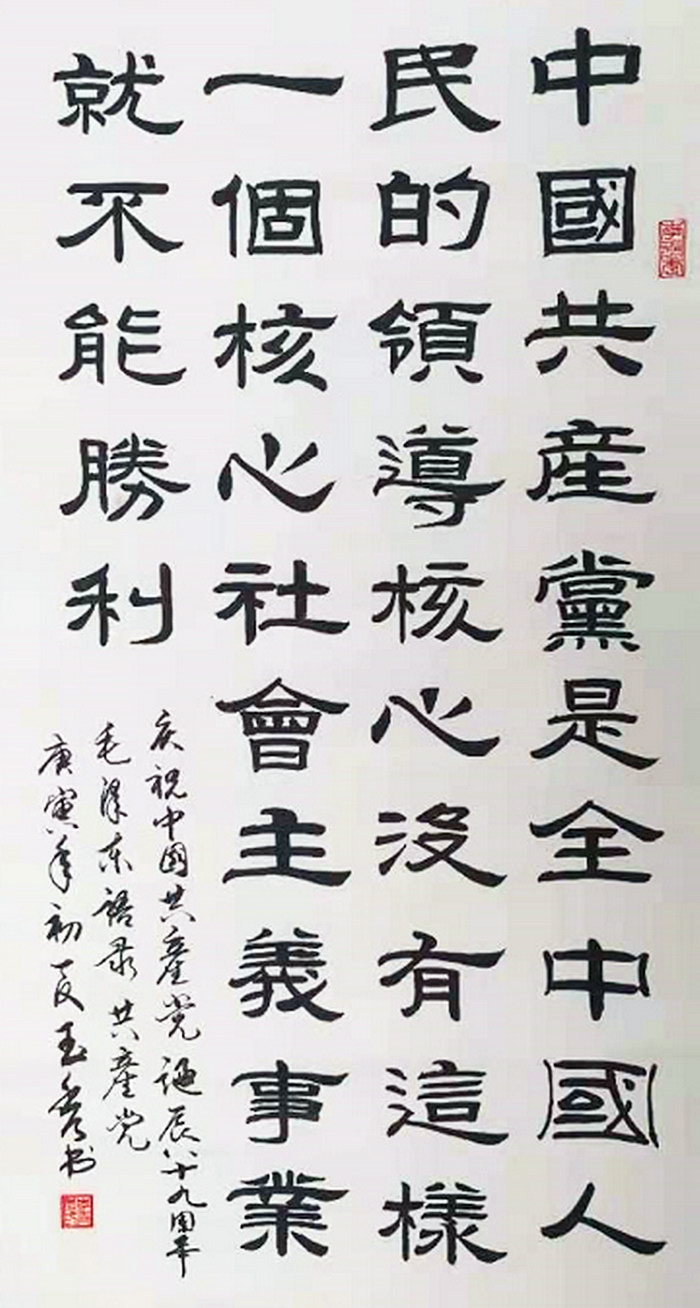 中國共産黨是全中國人
民的領導核心没有這樣
一個核心社會主義事業
就不能勝利
庆祝中国共產党诞辰八十九周年
毛泽东语录 共產党
庚寅年初夏玉秀书